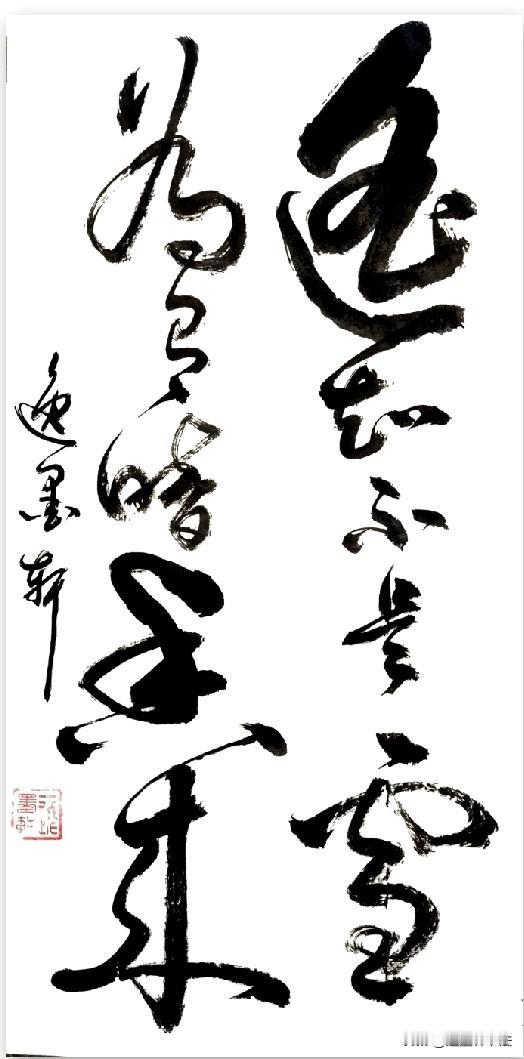 遥知不是雪
为有暗香来
逸墨轩